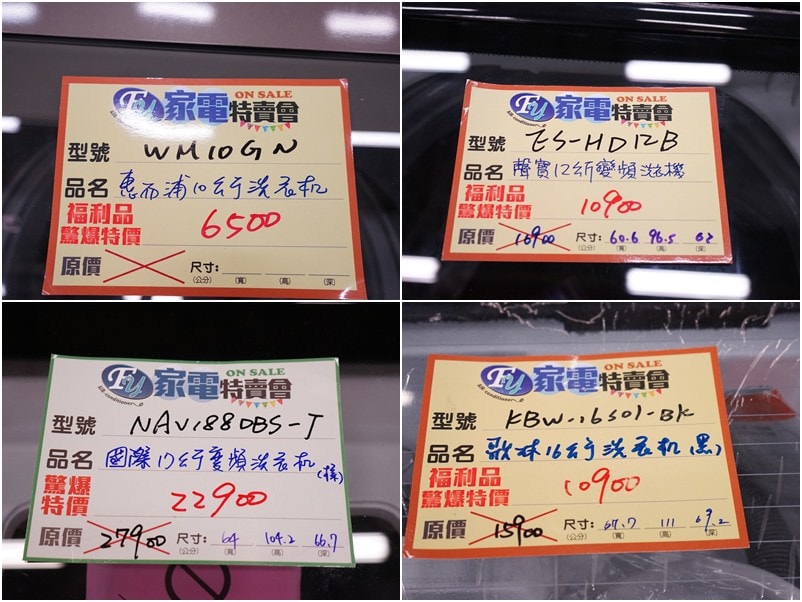 FU 家電特賣會 ON SALE
型號 WM10GN
品名 惠而浦10公斤洗衣机
福利品
驚爆特價 6500
原價 尺寸:
(公分) (寬) (高) (深)
FU 家電特賣會 ON SALE
Air-conditioner
型號 ES-HD12B
品名 聲寶12公斤變頻洗機
福利品
驚爆特價 10900
原價 16900 尺寸: 60.6 96.5 62
(公分) (寬) (高) (深)
FU 家電特賣會 ON SALE
Air-conditioner
型號 NAV188DBS-T
品名 國際17公斤變頻洗衣机(樣)
驚爆
特價 22900
原價 27900 尺寸: 64 104.2 66.7
(公分) (寬) (高) (深)
FU 家電特賣會 ON SALE
Air-conditioner
型號 KBW-16S01-BK
品名 歌林16公斤洗衣机(黑)
福利品
驚爆特價 10900
原價 15900 尺寸: 67.7 111 67.2
(公分) (寬) (高) (深)